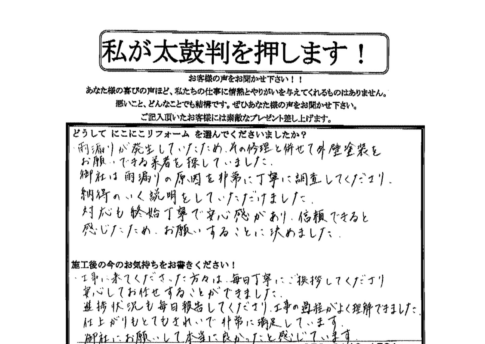 私が太鼓判を押します！
お客様の声をお聞かせ下さい！！
あなた様の喜びの声ほど、私たちの仕事に情熱とやりがいを与えてくれるものはありません。
悪いこと、どんなことでも結構です。ぜひあなた様の声をお聞かせ下さい。
ご記入頂いたお客様には素敵なプレゼント差し上げます。
どうして にこにこリフォーム を選んでくださいましたか？
・雨漏りが発生していたため、その修理と併せて外壁塗装を
お願いできる業者を探していました。
御社は雨漏りの原因を非常に丁寧に調査してくださり、
納得のいく説明をしていただけました。
対応も終始丁寧で安心感があり、信頼できると
感じたため、お願いすることに決めました。
施工後の今のお気持ちをお書きください！
・工事に来てくださった方々は、毎日丁寧にご挨拶してくださり
安心してお任せすることができました。
進捗状況も毎日報告してくださり、工事の過程がよく理解できました。
仕上がりもとてもきれいで非常に満足しています。
御社にお願いして本当に良かったと感じています。